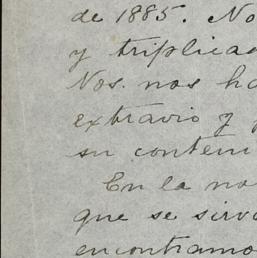 de 1885. No
y triplica
Nos. nos ha
extravio y
su conteni
En la no
que se sirv
encontramo